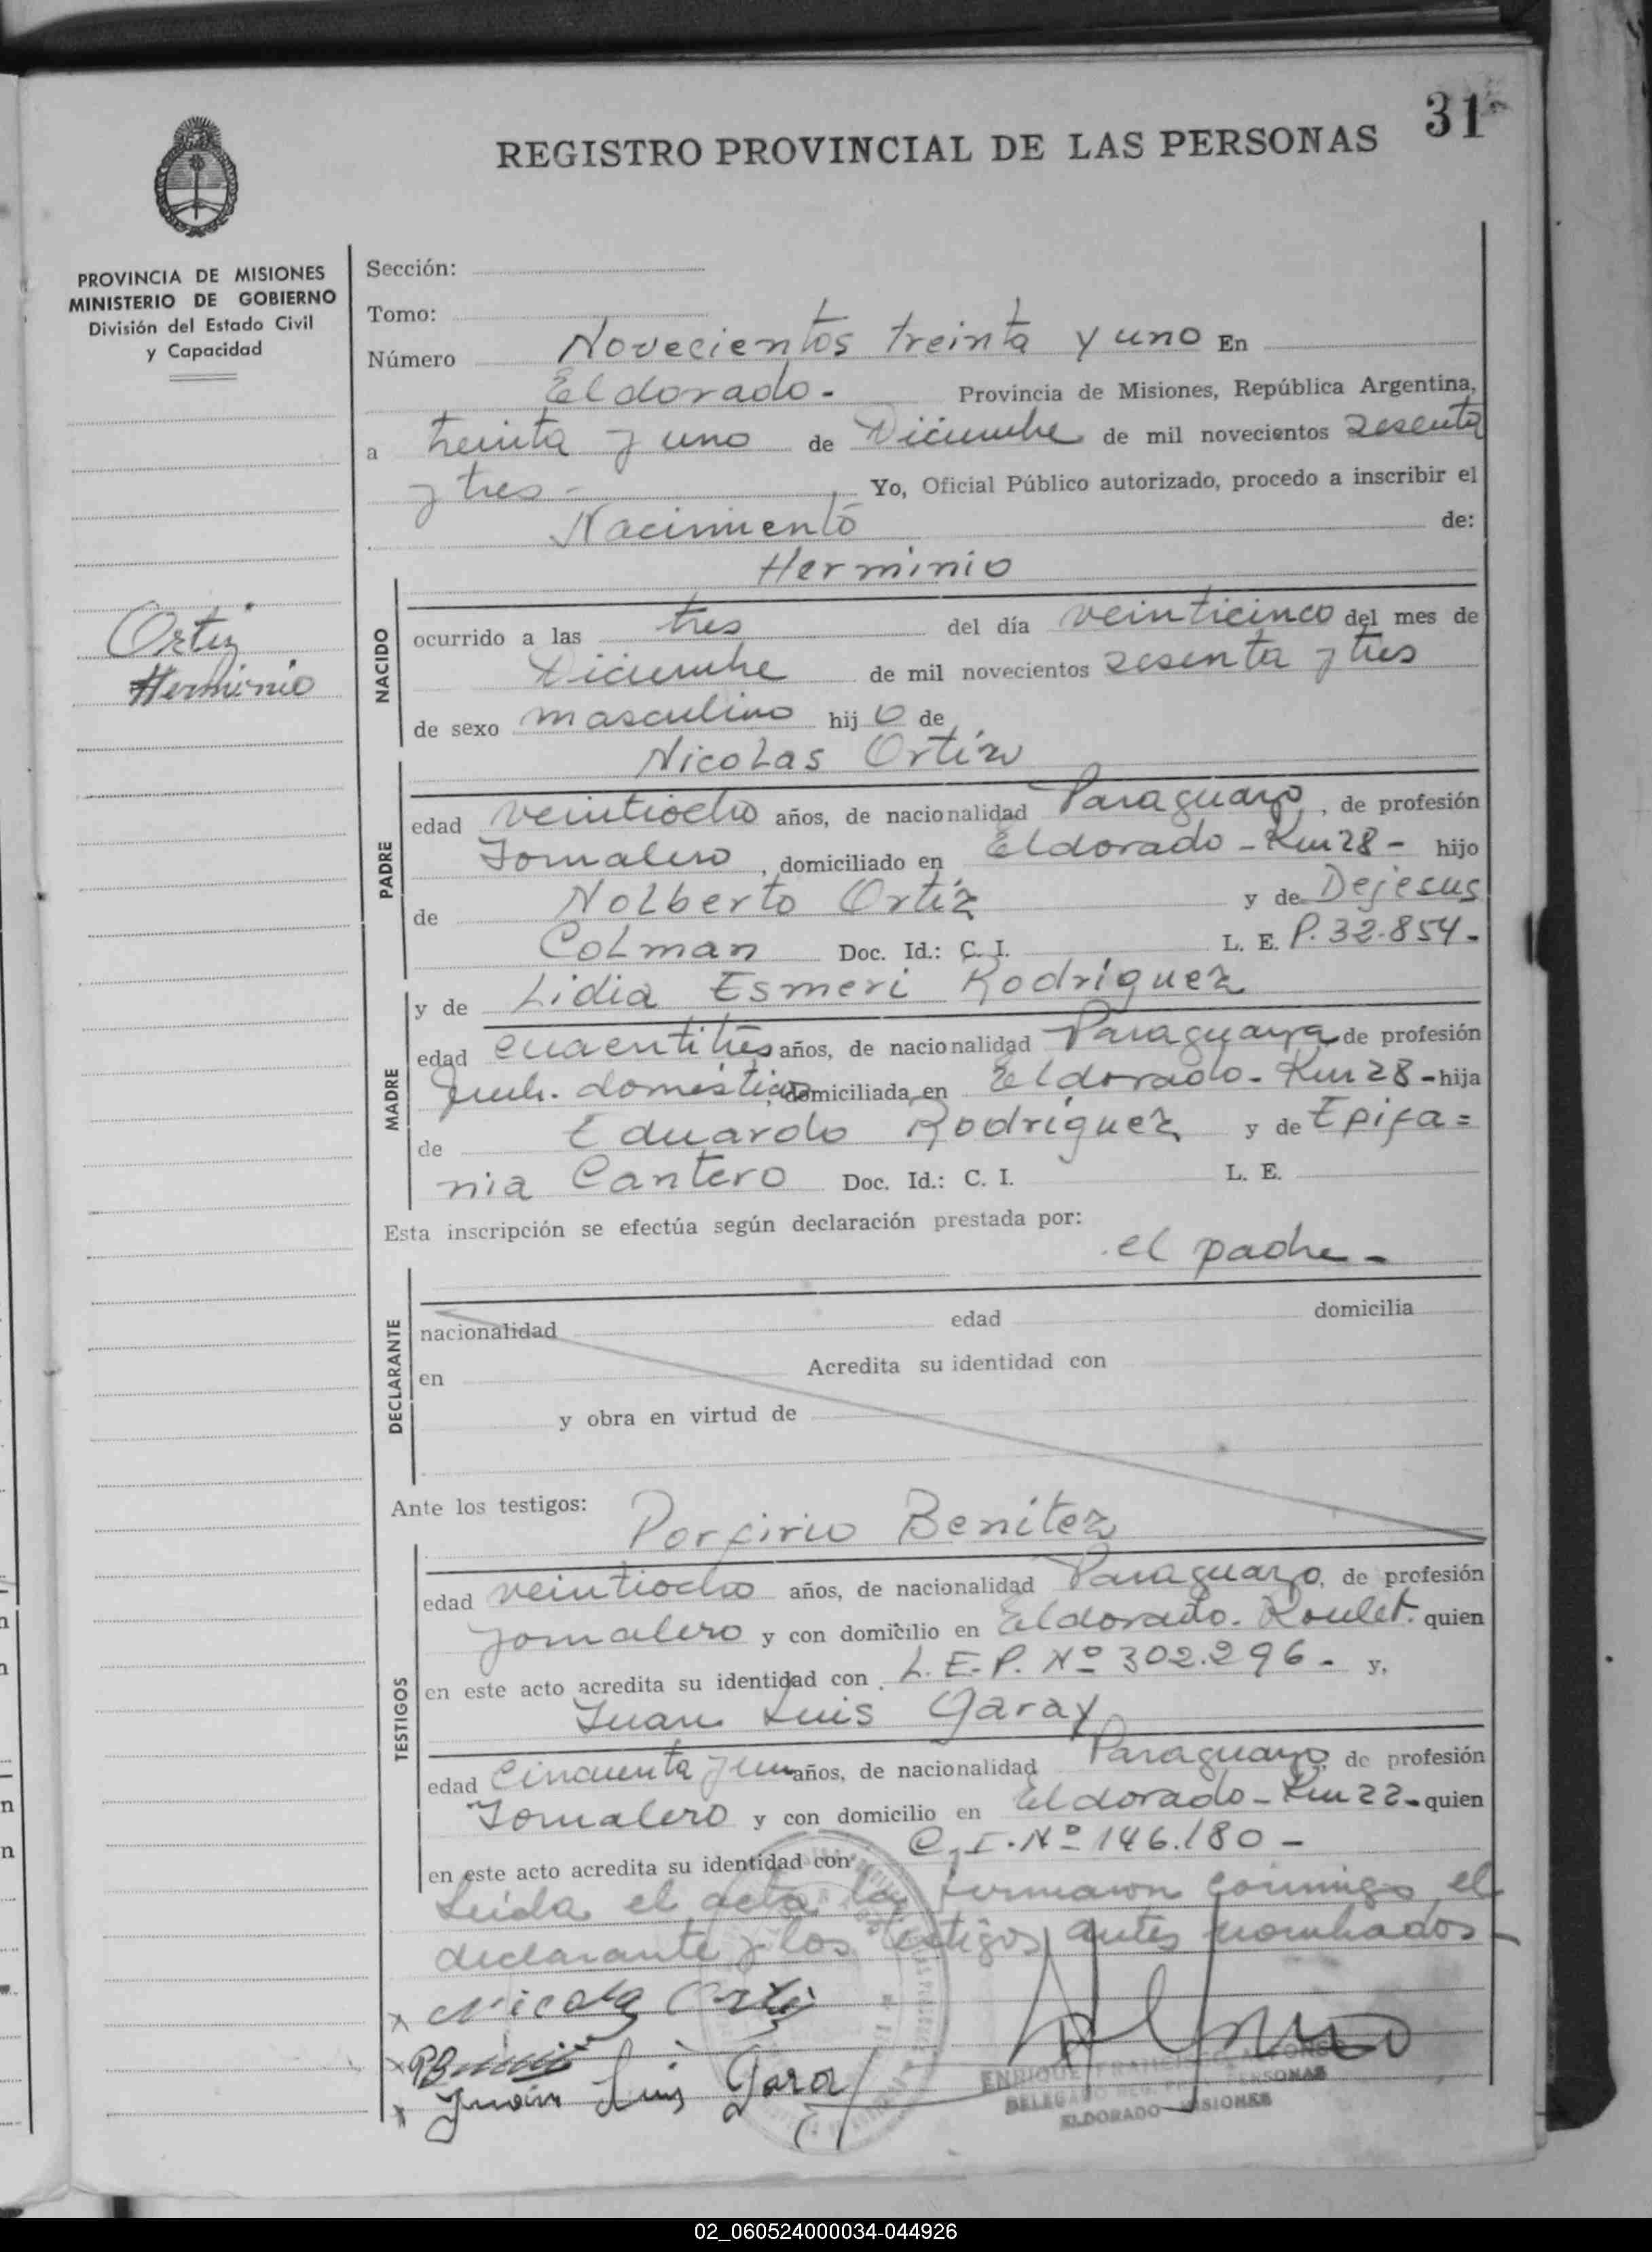 31
REGISTRO PROVINCIAL DE LAS PERSONAS
PROVINCIA DE MISIONES
MINISTERIO DE GOBIERNO
División del Estado Civil
y Capacidad
Ortiz
Herminio
Sección:
Tomo:
Número Novecientos treinta y uno En
Eldorado - Provincia de Misiones, República Argentina,
a treinta y uno de Diciembre de mil novecientos sesenta
y tres - , Yo, Oficial Público autorizado, procedo a inscribir el
Nacimiento de:
Herminio
NACIDO
ocurrido a las tres del día veinticinco del mes de
Diciembre de mil novecientos sesenta y tres
de sexo masculino hijo de
Nicolas Ortiz
PADRE
edad veintiocho años, de nacionalidad Paraguayo, de profesión
Jornalero, domiciliado en Eldorado - Km 28 - hijo
de Nolberto Ortiz y de Dejesus
Colman Doc. Id.: C. I. L. E. P. 32.854 -
y de Lidia Esmeri Rodriguez
MADRE
edad años, de nacionalidad Paraguaya de profesión
domiciliada en Eldorado - Km 28 - hija
de Eduardo Rodriguez y de Epifa=
nia Cantero Doc. Id.: C. I. L. E.
Esta inscripción se efectúa según declaración prestada por:
el padre -
DECLARANTE
nacionalidad edad domicilia
en Acredita su identidad con
y obra en virtud de
Ante los testigos:
Porfirio Benitez
TESTIGOS
edad veintiocho años, de nacionalidad Paraguayo, de profesión
Jornalero y con domicilio en Eldorado - quien
en este acto acredita su identidad con L. E. P. Nº 302.296 - y,
Juan Luis Garay
edad Cincuenta y un años, de nacionalidad Paraguayo de profesión
Jornalero y con domicilio en Eldorado - Km 22 - quien
en este acto acredita su identidad con C. I. Nº 146.180 -
Leida el acta la firmaron conmigo el
declarante y los testigos antes nombrados -
x Nicolas Ortiz
x
x Juan Luis Garay
ENRIQUE FRANCISCO
DELEGADO REG. PROV. PERSONAS
ELDORADO - MISIONES
02_060524000034-044926